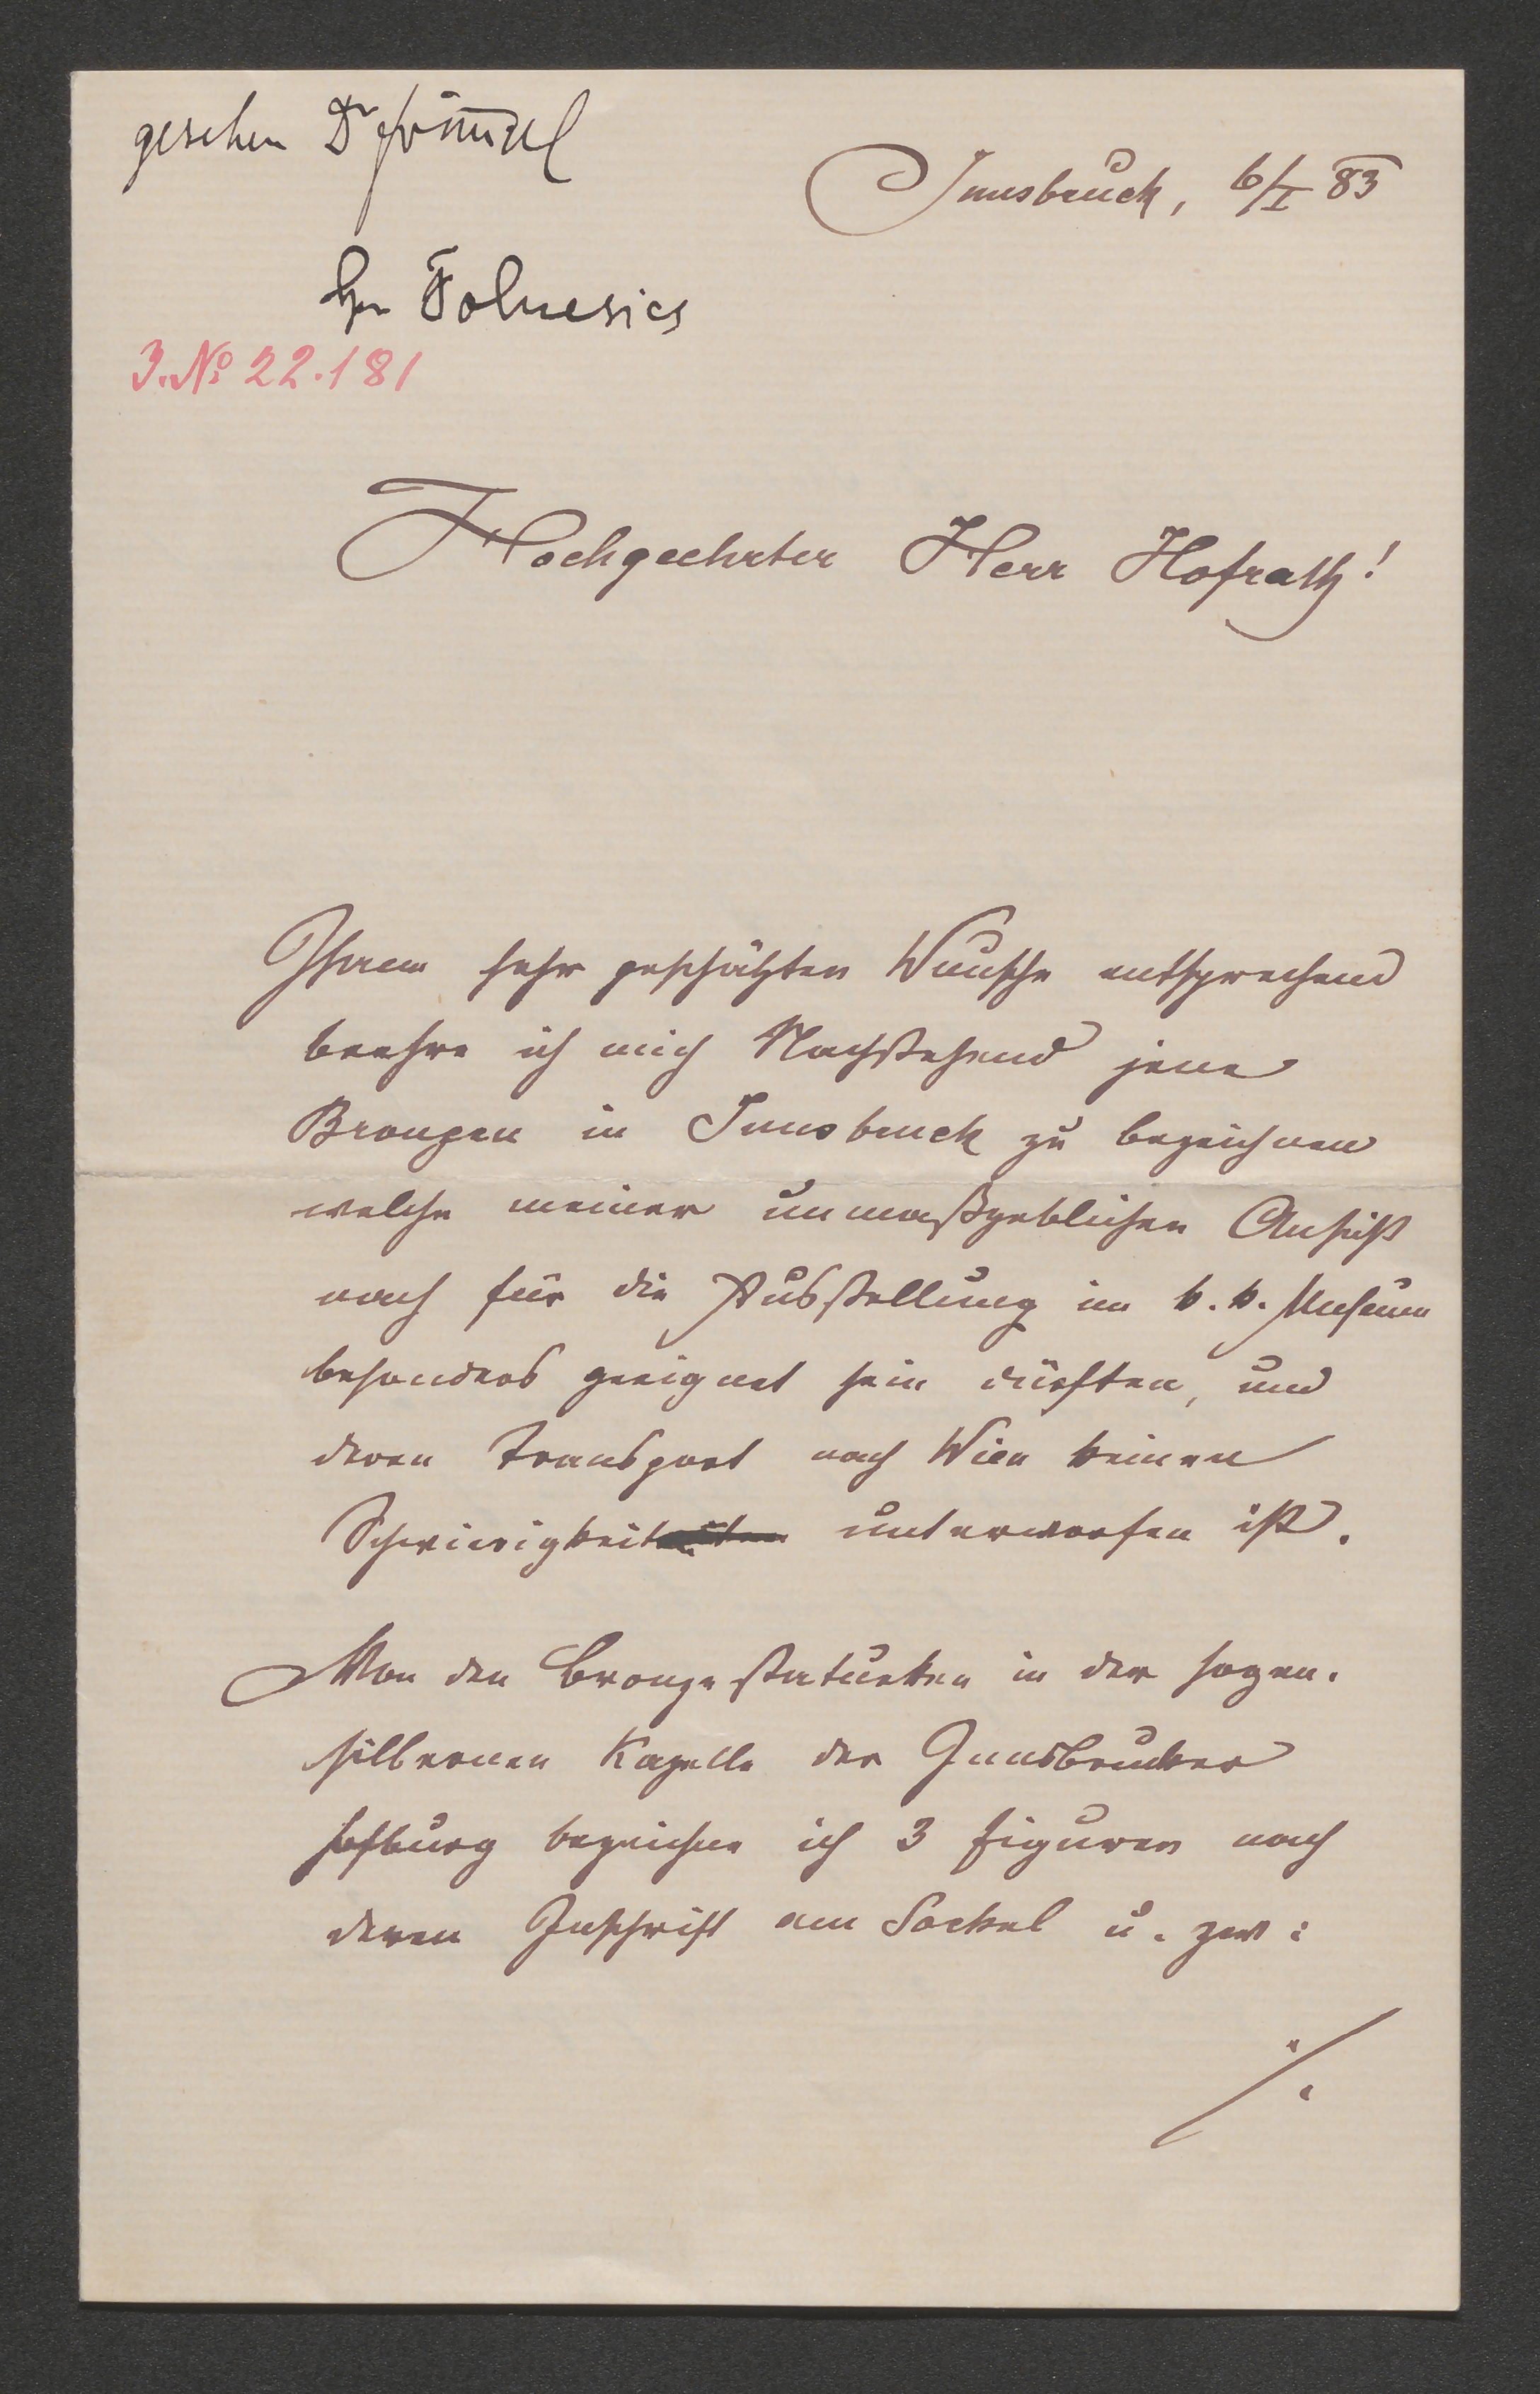 gesehen Dr
Innsbruck, 6/I 83
Hr Folnesics
J. No 22.181
Hochgeehrter Herr Hofrath!
Ihrem sehr geschätzten Wunsche entsprechend
beehre ich mich Nachstehend jene
Bronzen in Innsbruck zu bezeichnen
welche meiner unmaßgeblichen Ansicht
nach für die Ausstellung im k. k. Museum
besonders geeignet sein dürften, und
deren Transport nach Wien keinen
Schwierigkeit unterworfen ist.
Von den Bronzestatuetten in der sogen.
silbernen Kapelle der Innsbrucker
Hofburg bezeichne ich 3 Figuren nach
deren Inschrift am Sockel u. zw:
./.